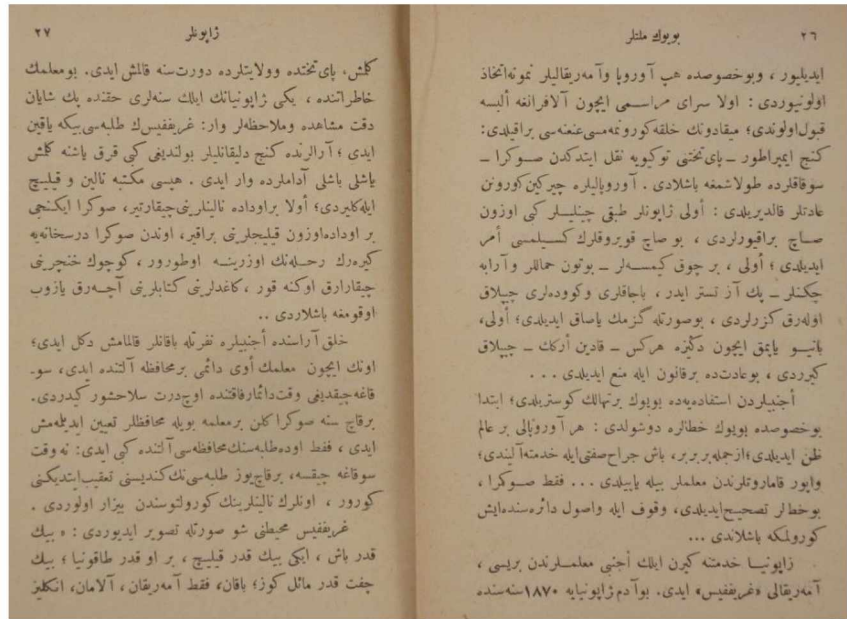 ٢٦ بويوك ملتلر
ايديليور ، وبوخصوصده هپ آوروپا وآمه‌ريقاليلر نمونه‌اتخاذ
اولونيوردى : اولا سراى مراسمى ايچون آلافرانغه ألبسه
قبول‌اولوندى ؛ ميقادونك خلقه‌كورونمه‌مسى‌عنعنه‌سى براقيلدى :
كنج ايمپراطور ــ پاى‌تختنى توكيويه نقل ايتدكدن صوكرا ــ
سوقاقلرده طولاشمغه باشلادى . آوروپاليلره چيركين‌كورونن
عادتلر قالديريلدى : أولى ژاپونلر طبقى چينليلر كبى اوزون
صاچ براقيورلردى ، بو صاچ قويروقلرك كسيلمسى أمر
ايديلدى ؛ أولى ، بر چوق كيمسه‌لر ــ بوتون حماللر وآرابه
چكنلر ــ پك آز تستر ايدر ، باجاقلرى وكووده‌لرى چيپلاق
اوله‌رق كزرلردى ، بوصورتله گزمك ياصاق ايديلدى ؛ أولى،
بانيو ياپمق ايچون دكيزه هركس ــ قادين أركك ــ چيپلاق
كيرردى ، بوعادت‌ده برقانون ايله منع ايديلدى . . .
أجنبيلردن استفاده‌يه‌ده بويوك برتهالك كوستريلدى ؛ ابتدا
بوخصوصده بويوك خطالره دوشولدى : هر آوروپالى بر عالم
ظن ايديلدى ؛ ازجمله بربربر، باش جراح صفتى‌ايله خدمته‌آليندى ؛
واپور قاماروتلرندن معلملر بيله ياپيلدى ... فقط صوكرا ،
بوخطالر تصحيح‌ايديلدى، وقوف ايله واصول دائره‌سنده‌ايش
كورولمكه باشلاندى ...
ژاپونيا خدمتنه كيرن ايلك أجنبى معلملرندن بريسى ،
آمه‌ريقالى «غريففيس» ايدى. بوآدم ژاپونيايه ١٨٧٠ سنه‌سنده
ژاپونلر ٢٧
كلمش، پاى‌تختده وولايتلرده دورت‌سنه قالمش ايدى . بومعلمك
خاطراتنده ، يكى ژاپونيانك ايلك سنه‌لرى حقنده پك شايان
دقت مشاهده وملاحظه‌لر وار: غريففيس‌ك طلبه‌سى‌بيكه ياقين
ايدى ؛ آرالرنده كنج دليقانليلر بولنديغى كبى قرق ياشنه كلمش
ياشلى باشلى آداملرده وار ايدى . هپسى مكتبه نالين و قيليچ
ايله‌كليردى؛ أولا براوداده نالينلرينى‌چيقارتير، صوكرا ايكنجى
بر اوداده‌اوزون قيليجلرينى براقير، اوندن صوكرا درسخانه‌يه
كيره‌رك رحله‌نك اوزرينه اوطورور ، كوچوك خنچرينى
چيقارارق اوكنه قور ، كاغدلرينى كتابلرينى آچه‌رق يازوب
اوقومغه باشلاردى ..
خلق آراسنده أجنبيلره نفرتله باقانلر قالمامش دكل ايدى ؛
اونك ايچون معلمك أوى دائمى برمحافظه آلتنده ايدى ، سو-
قاغه‌چيقديغى وقت‌دائمارفاقتنده اوچ‌درت سلاحشور كيدردى.
برقاچ سنه صوكرا كلن برمعلمه بويله محافظلر تعيين ايديلمه‌مش
ايدى ، فقط اوده‌طلبه‌سنك‌محافظه‌سى‌آلتنده كبى ايدى : نه‌وقت
سوقاغه چيقسه، برقاچ‌يوز طلبه‌سى‌نك‌كنديسنى تعقيب‌ايتديكنى
كورور ، اونلرك نالينلرينك كورولتوسندن بيزار اولوردى .
غريففيس محيطنى شو صورتله تصوير ايديوردى : « بيك
قدر باش ، ايكى بيك قدر قيليچ ، بر او قدر طاقونيا ؛ بيك
چفت قدر مائل كوز ؛ باقان، فقط آمه‌ريقان ، آلامان، انكليز